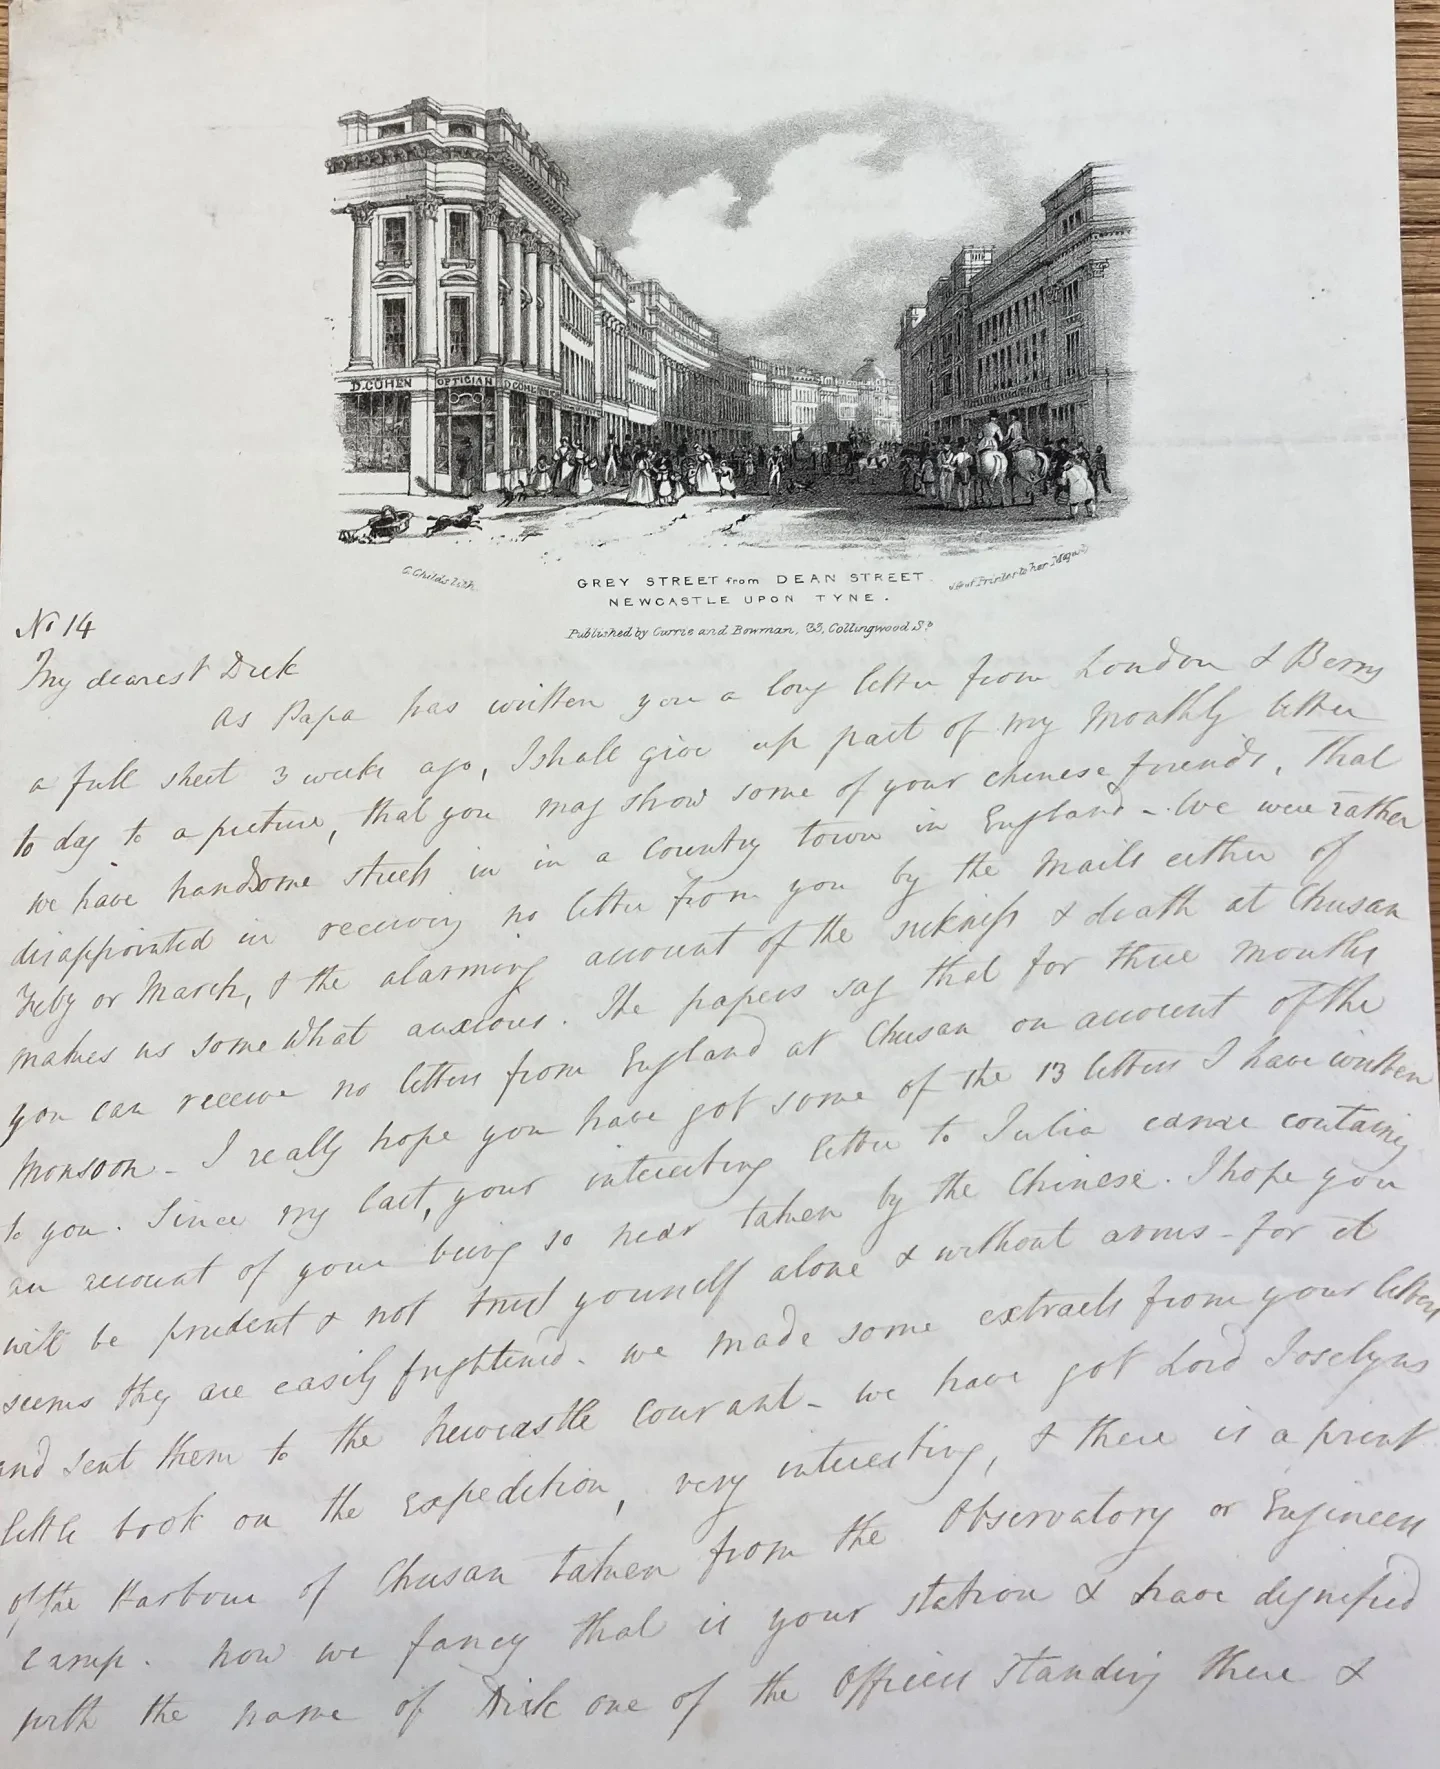 D. COHEN OPTICIAN D. COHEN
G. Childs Lith.
GREY STREET from DEAN STREET.
NEWCASTLE UPON TYNE.
Printer to her Majesty
Published by Currie and Bowman, 33, Collingwood St.
No 14
My dearest Dick
As Papa has written you a long letter from London & Berry
a full sheet 3 weeks ago, I shall give up part of my Monthly letter
to day to a picture, that you may show some of your chinese friends, That
we have handsome streets in in a Country town in England - We were rather
disappointed in receiving no letter from you by the Mails either of
Feby or March, & the alarming account of the sickness & death at Chusan
makes us somewhat anxious. The papers say that for three months
you can receive no letters from England at Chusan on account of the
Monsoon - I really hope you have got some of the 13 letters I have written
to you. Since my last, your interesting letter to Julia came containing
an account of your being so near taken by the Chinese. I hope you
will be prudent & not trust yourself alone & without arms - for it
seems they are easily frightened - we made some extracts from your letters
and sent them to the Newcastle Courant - we have got Lord Jocelyns
little book on the Expedition, very interesting, & there is a print
of the Harbour of Chusan taken from the Observatory or Engineers
camp. now we fancy that is your station & have dignified
with the name of Dick one of the Officers standing there &